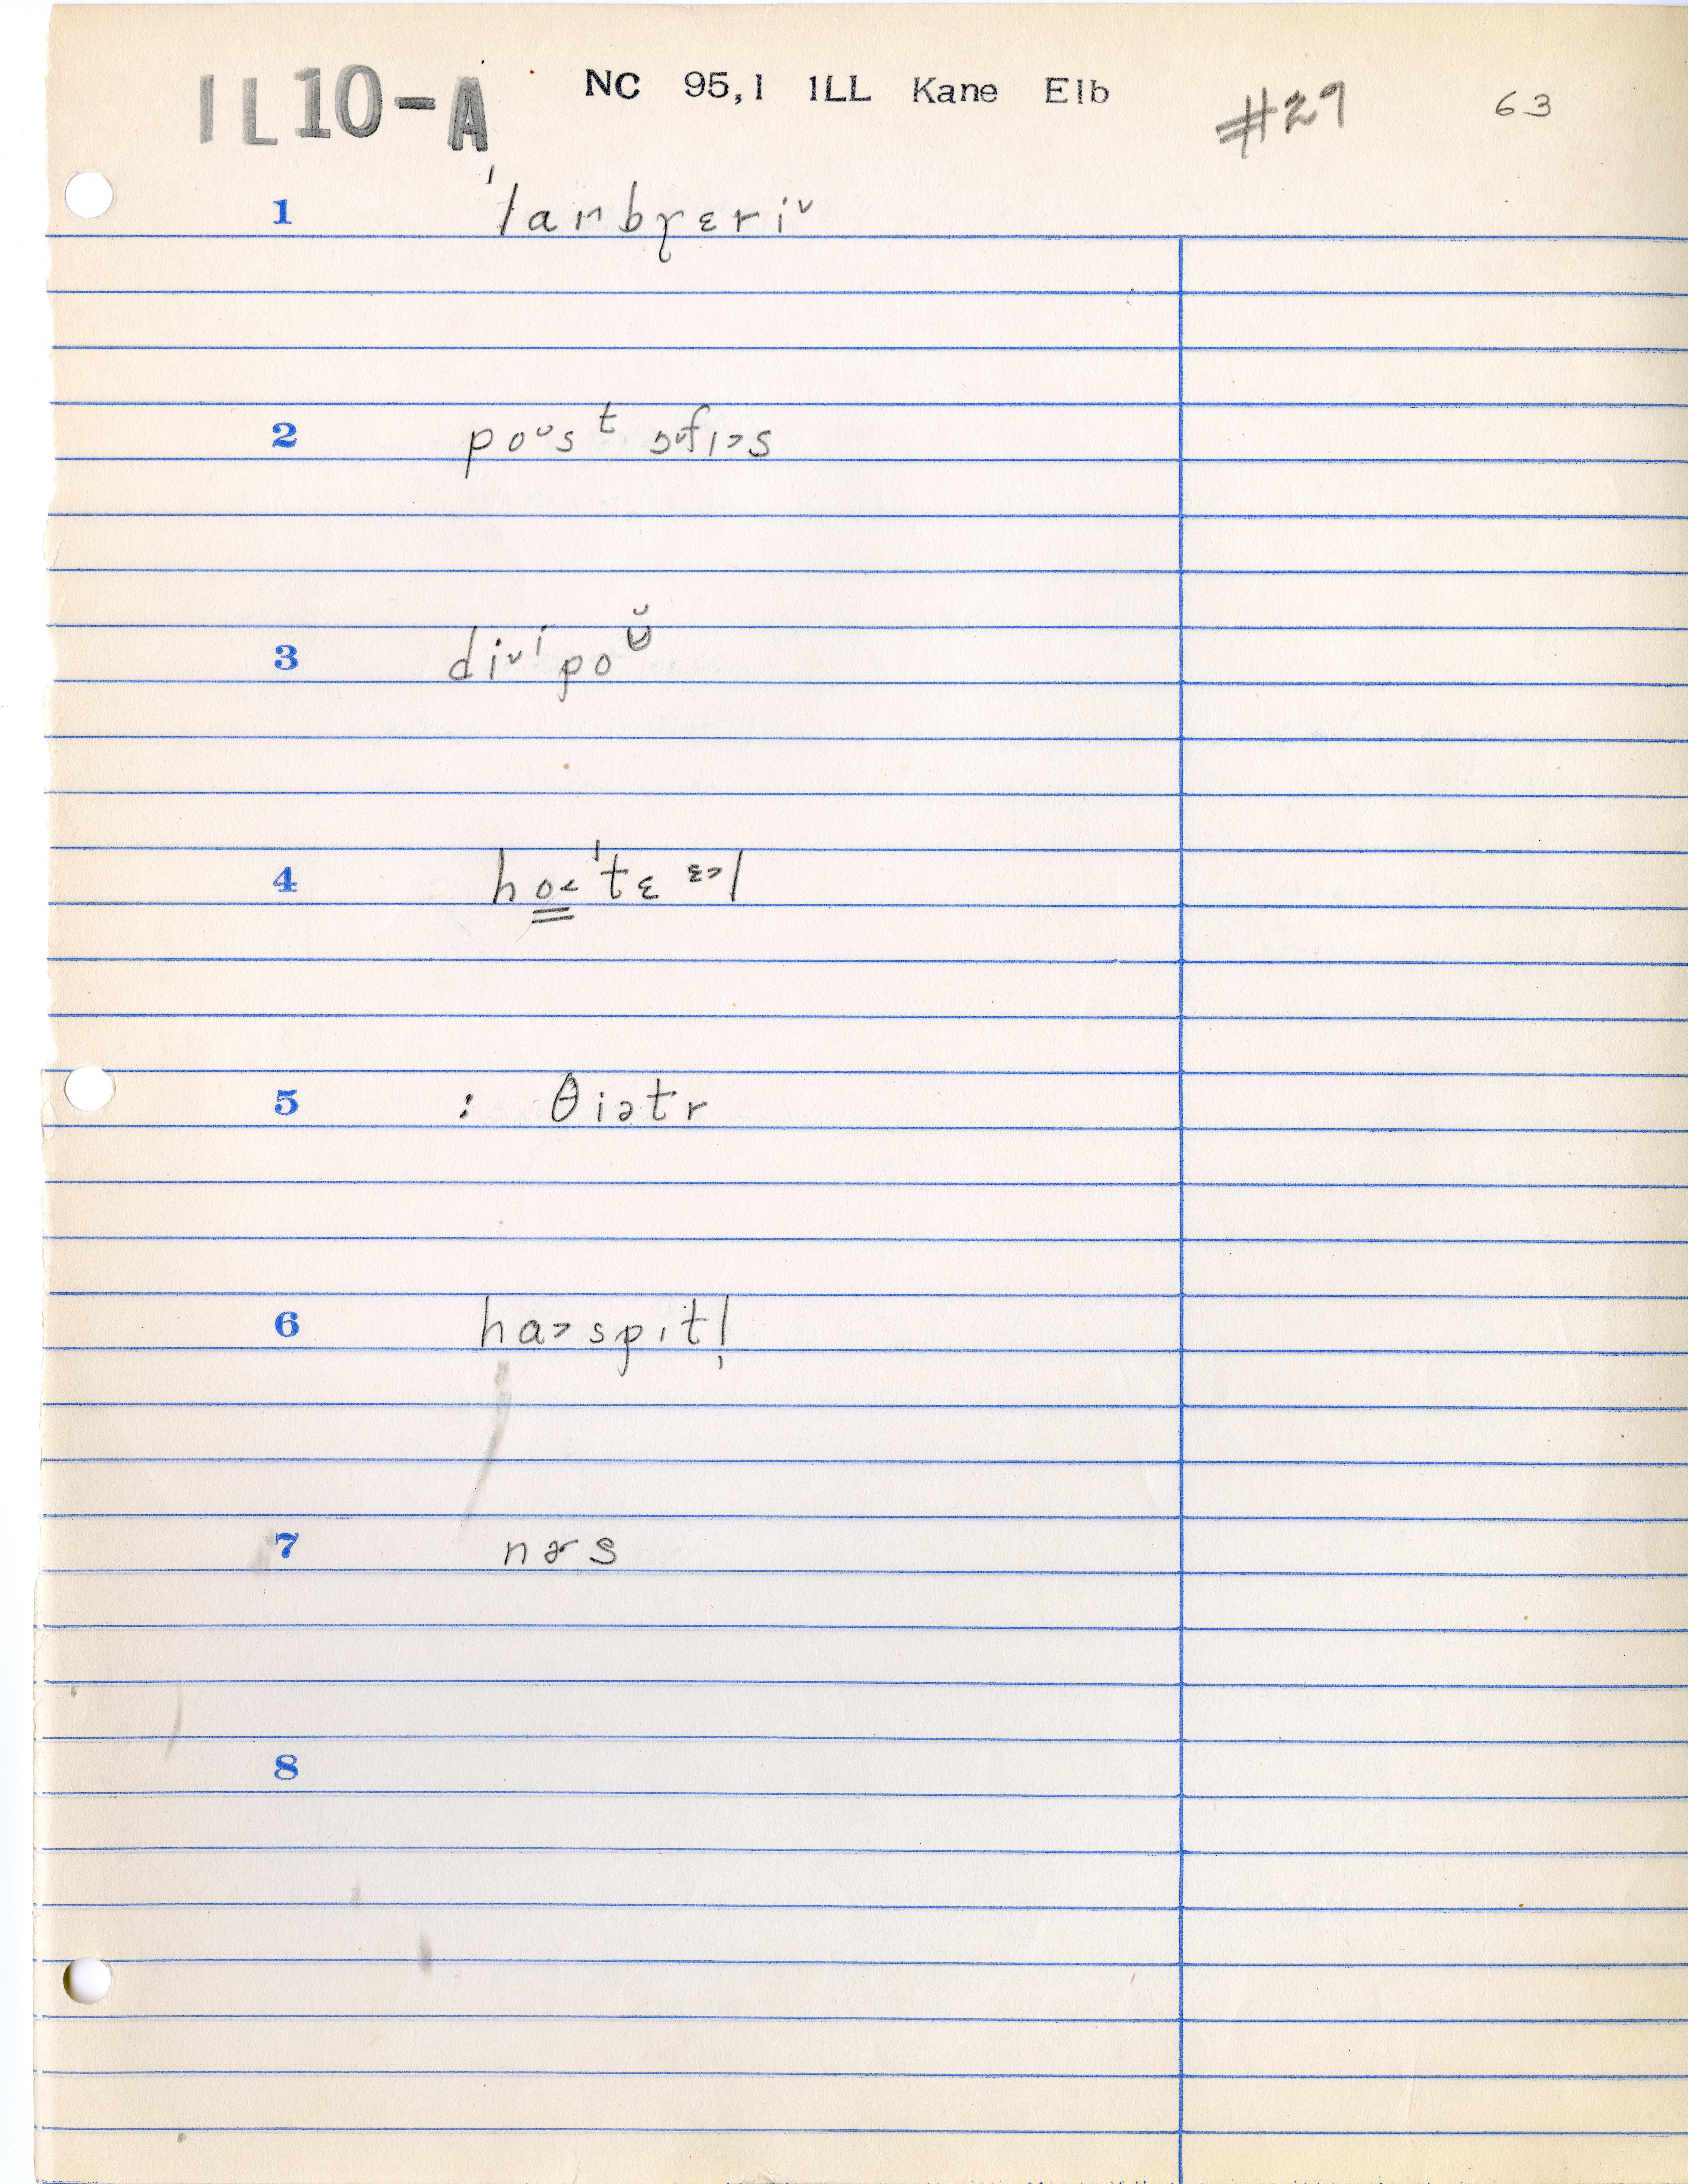 IL10-A NC 95,1 ILL Kane Elb #29 63
1 ˈlaɪbrɛri˅
2 poᵘsᵗ ɔ˅fɪ>s
3 di˅ˈpoᵘ̆
4 ho<ˈtɛ ᵋ>l
5 : θiətr
6 ha>spɪtl̩
7 nɚs
8